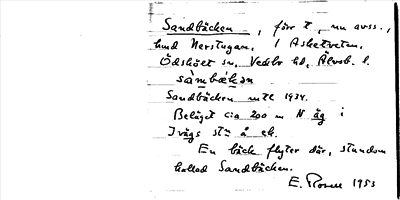 Sandbäcken, förr t, nu avs.,
hmd Nerstugan, i Asketveten,
Ödskölt sn, Vedbo hd, Älvsb. l.
sàmbækən
Sandbäcken mtl 1934.
Beläget c:a 200 m N äg i
Ivägs st:n å ek.
En bäck flyter där, stundom
kallad Sandbäcken.
E. Rosell 1953